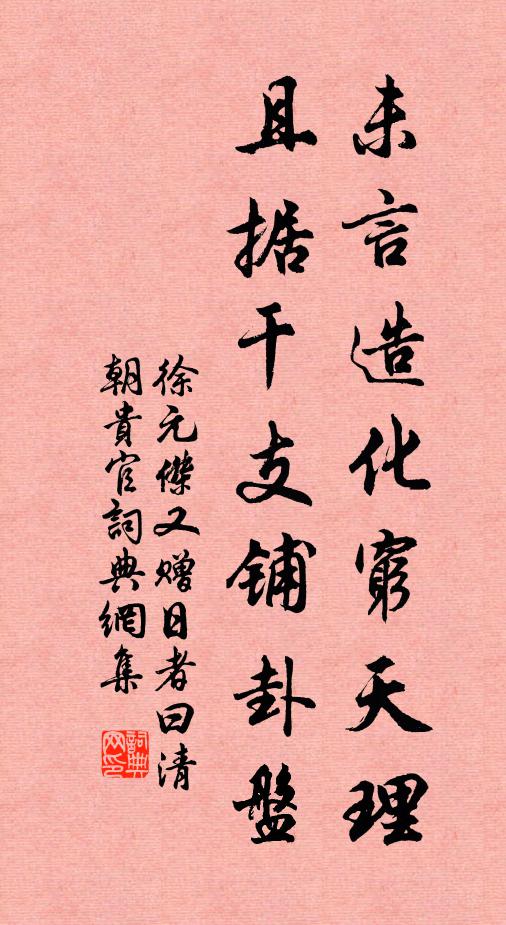 未言造化窮天理
且据干支鋪卦盤
徐元傑又赠日者曰清
朝貴官詞典網集
詞典网印